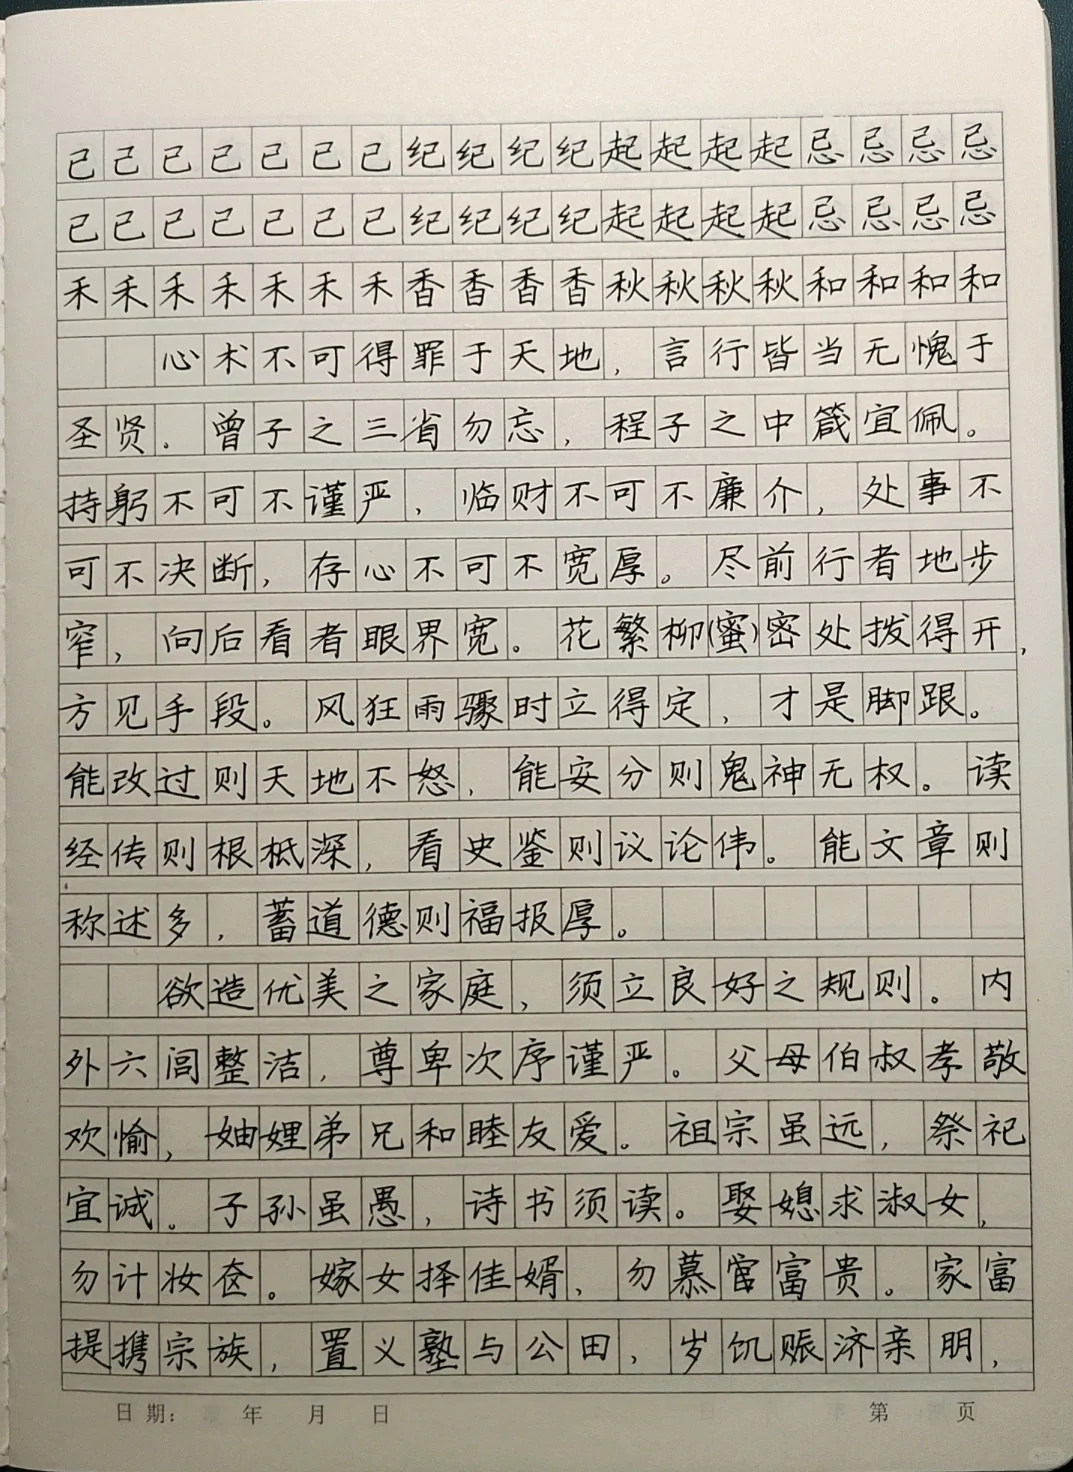 己己己己己己己纪纪纪纪起起起起忌忌忌忌
己己己己己己己纪纪纪纪起起起起忌忌忌忌
禾禾禾禾禾禾禾香香香香秋秋秋秋和和和和
心术不可得罪于天地，言行皆当无愧于
圣贤。曾子之三省勿忘，程子之中箴宜佩。
持躬不可不谨严，临财不可不廉介，处事不
可不决断，存心不可不宽厚。尽前行者地步
窄，向后看者眼界宽。花繁柳(蜜)密处拨得开，
方见手段。风狂雨骤时立得定，才是脚跟。
能改过则天地不怒，能安分则鬼神无权。读
经传则根柢深，看史鉴则议论伟。能文章则
称述多，蓄道德则福报厚。
欲造优美之家庭，须立良好之规则。内
外六闾整洁，尊卑次序谨严。父母伯叔孝敬
欢愉，妯娌弟兄和睦友爱。祖宗虽远，祭祀
宜诚。子孙虽愚，诗书须读。娶媳求淑女，
勿计妆奁。嫁女择佳婿，勿慕富贵。家富
提携宗族，置义塾与公田，岁饥赈济亲朋，
日期： 年 月 日 第 页